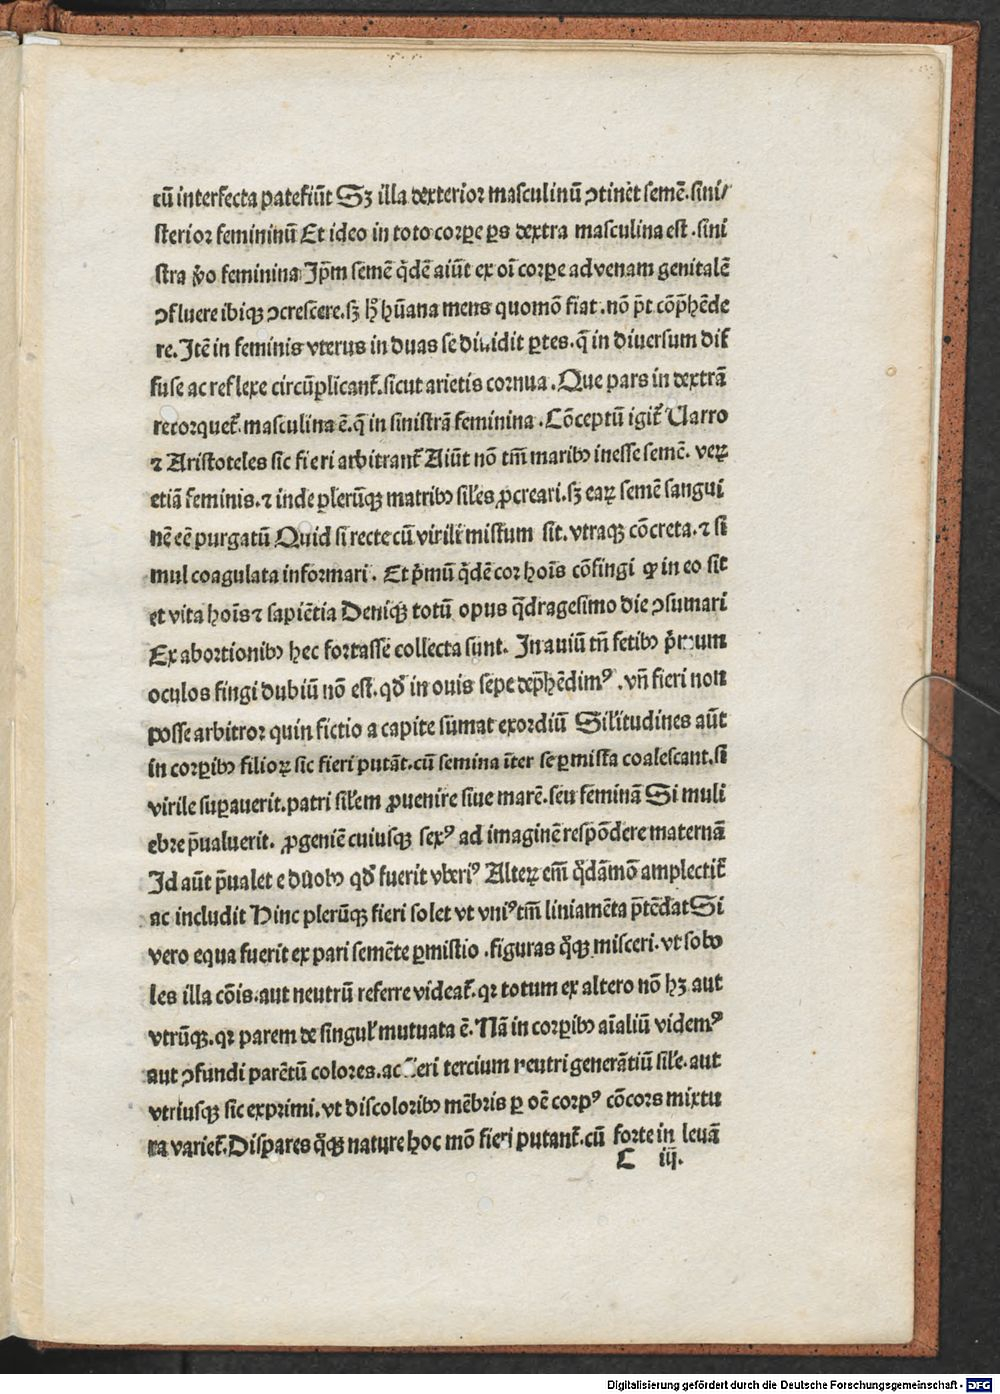 cū interfecta patefiūt Sꝫ illa dexterior masculinū ꝯtinēt semē.sini/
sterior femininū Et ideo in toto corꝑe ꝑs dextra masculina est .sini
stra ꝟo feminina Ip̄m semē q̄dē aiūt ex oī corꝑe ad venam genitalē
ꝯfluere ibiqꝫ ꝯcrescere.sꝫ hͦ hūana mens quomō fiat .nō p̄t cōp̄hēde
re. Itē in feminis vterus in duas se diuidit ꝑtes. q̄ in diuersum dif
fuse ac reflexe circūplicant᷑.sicut arietis cornua . Que pars in dextrā
retorquet᷑.masculina ē. q̄ in sinistrā feminina . Cōceptū igit᷑ Uarro
⁊ Aristoteles sic fieri arbitrant᷑ Aiūt nō tm̄ maribꝰ inesse semē. veꝝ
etiā feminis.⁊ inde pleruͥqꝫ matribꝰ siles ꝓcreari.sꝫ eaꝝ semē sangui
nē eē purgatū Quid si recte cū virili mistum sit. vtraqꝫ cōcreta.⁊ si
mul coagulata informari . Et p̄mū q̄dē cor hoīs cōfingi ꝙ in eo sit
et vita hoīs ⁊ sapiētia Deniqꝫ totū opus q̄dragesimo die ꝯsumari
Ex abortionibꝰ hec fortasse collecta sunt. In auiū tn̄ fetibꝰ
oculos fingi dubiū nō est. qd̄ in ouis sepe dep̄hēdimꝰ .vn̄ fieri non
posse arbitror quin fictio a capite sūmat exordiū Silitudines aūt
in corꝑibꝰ filioꝝ sic fieri putāt.cū semina īter se ꝑmista coalescant.si
virile suꝑauerit.patri silem ꝓuenire siue marē.seu feminā Si muli
ebre p̄ualuerit. ꝓgeniē cuiusqꝫ sexꝰ ad imaginē respōdere maternā
Id aūt p̄ualet e duobꝰ qd̄ fuerit vberiꝰ Alteꝝ em̄ q̄dāmō amplectit᷑
ac includit Hinc plerūqꝫ fieri solet vt vniꝰ tm̄ liniamēta p̄tēdat Si
vero equa fuerit ex pari semēte ꝑmistio .figuras q̄qꝫ misceri.vt sobo
les illa cōis.aut neutrū referre videat᷑. qꝛ totum ex altero nō hꝫ aut
vtrūqꝫ.qꝛ parem de singul᷑ mutuata ē. Nā in corꝑibꝰ aīaliū videmꝰ
aut ꝯfundi parētū colores.ac fieri tercium neutri generātiū sile.aut
vtriusqꝫ sic exprimi.vt discoloribꝰ mēbris ꝑ oē corpꝰ cōcors mixtu
ra variet᷑.Dispares q̄qꝫ nature hoc mō fieri putant᷑.cū forte in leuā
C iij.
Digitalisierung gefördert durch die Deutsche Forschungsgemeinschaft - DFG